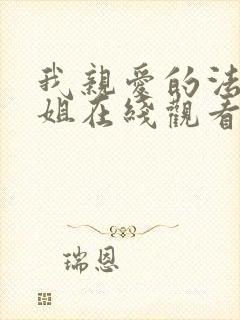 我親愛的法
姐在綫觀看
瑞恩